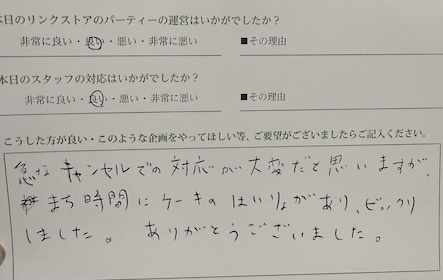 本日のリンクストアのパーティーの運営はいかがでしたか？
非常に良い・良い・悪い・非常に悪い　■その理由
本日のスタッフの対応はいかがでしたか？
非常に良い・良い・悪い・非常に悪い　■その理由
こうした方が良い・このような企画をやってほしい等、ご要望がございましたらご記入ください。
急なキャンセルでの対応が大変だと思いますが、
まち時間にケーキのはいりょがあり、ビックリ
しました。ありがとうございました。